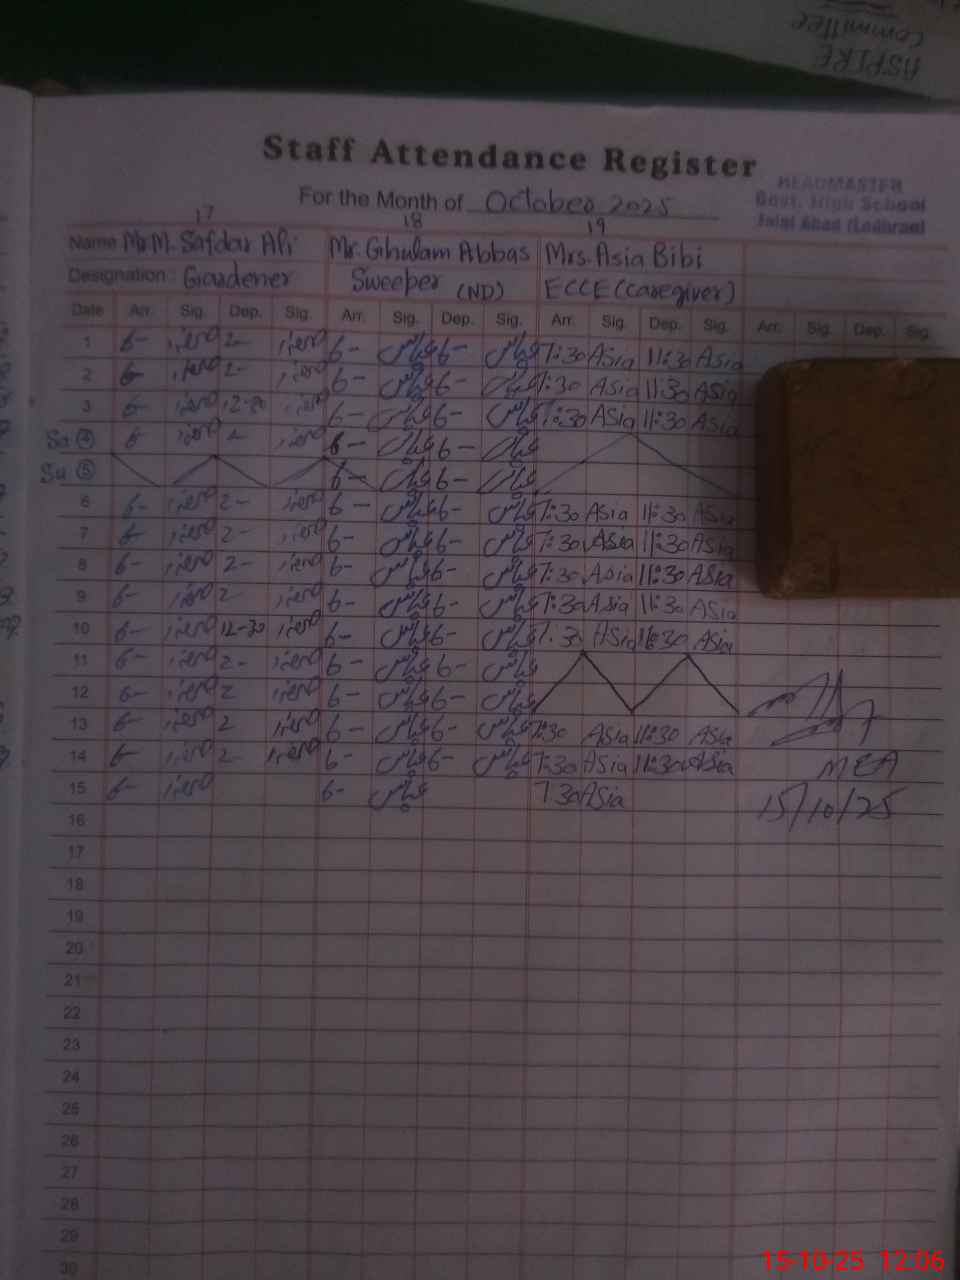 ASPIRE
Committee
Staff Attendance Register
For the Month of October 2025
HEADMASTER
Govt. High School
Jalal Abad (Lodhran)
17 18 19
Name Mr M. Safdar Ali Mr. Ghulam Abbas Mrs. Asia Bibi
Designation : Gardener Sweeper (ND) ECCE (caregiver)
Date Arr. Sig. Dep. Sig. Arr. Sig. Dep. Sig. Arr. Sig. Dep. Sig. Arr. Sig. Dep. Sig.
1 6- 2- 6- عباس 6- عباس 7:30 Asia 11:30 Asia
2 6- 2- 6- عباس 6- عباس 7:30 Asia 11:30 Asia
3 6- 6- عباس 6- عباس 7:30 Asia 11:30 Asia
Sa 4 6- 6- عباس 6- عباس
Su 5 6- عباس 6- عباس
6 6- 2- 6- عباس 6- عباس 7:30 Asia 11:30 Asia
7 6- 2- 6- عباس 6- عباس 7:30 Asia 11:30 Asia
8 6- 2- 6- عباس 6- عباس 7:30 Asia 11:30 Asia
9 6- 2- 6- عباس 6- عباس 7:30 Asia 11:30 Asia
10 6- 12-30 6- عباس 6- عباس 7:30 Asia 11:30 Asia
11 6- 2- 6- عباس 6- عباس
12 6- 2 6- عباس 6- عباس
13 6- 2 6- عباس 6- عباس 7:30 Asia 11:30 Asia
14 6- 2- 6- عباس 6- عباس 7:30 Asia 11:30 Asia
MEA
15 6- 6- عباس 7:30 Asia
15/10/25
16
17
18
19
20
21
22
23
24
25
26
27
28
29
30
15-10-25 12:06